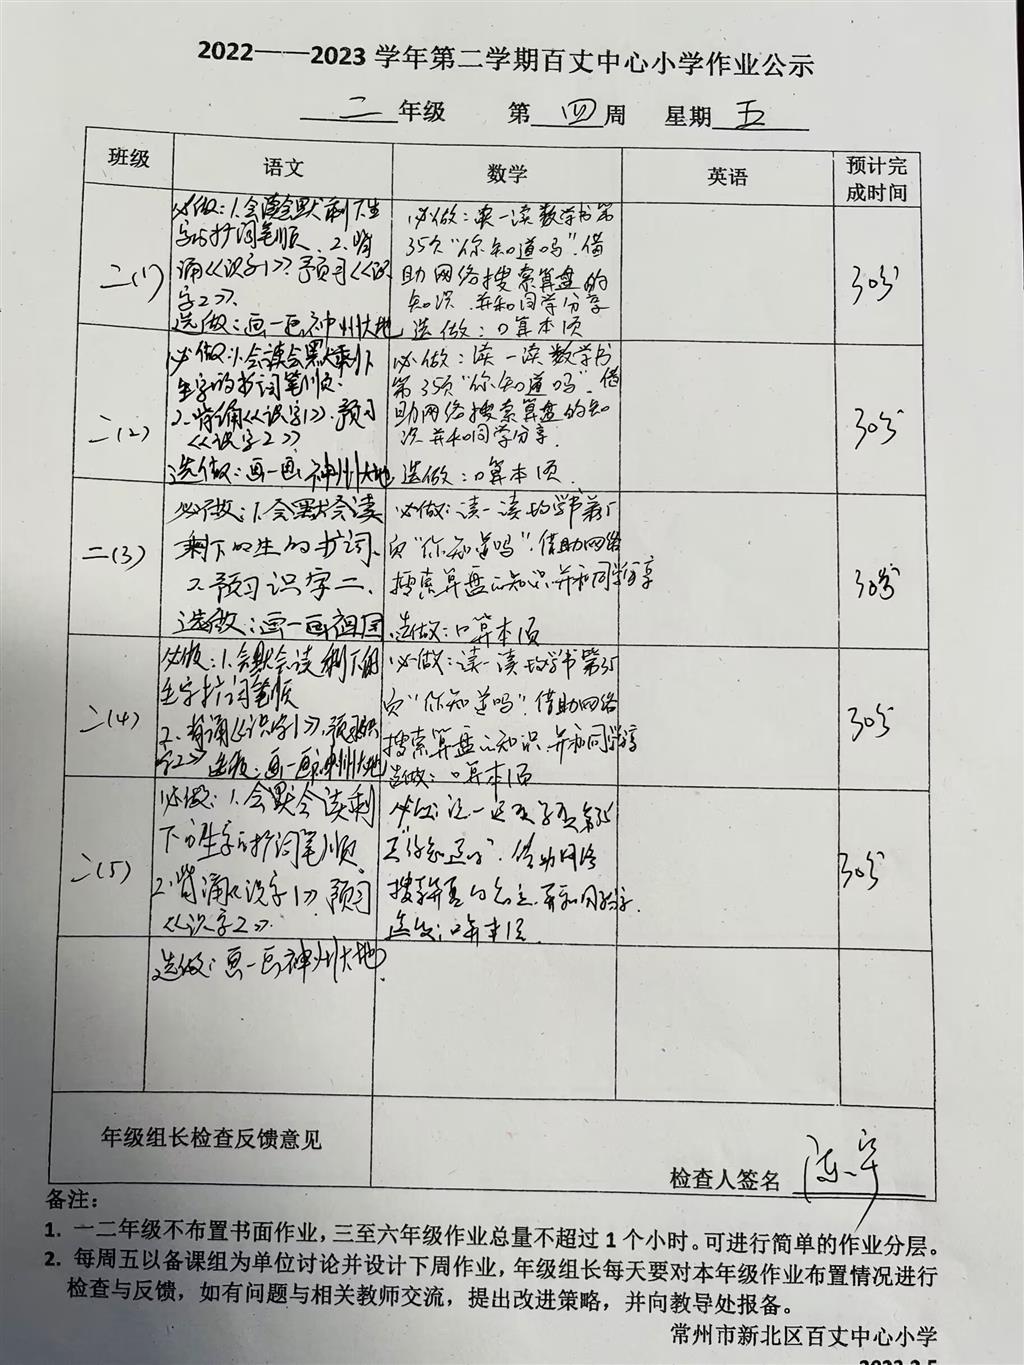 2022——2023 学年第二学期百丈中心小学作业公示
二 年级 第 四 周 星期 五
班级 语文 数学 英语 预计完成时间
二(1)
必做：1.会读会默剩下生
字的扩词笔顺.2.背
诵《识字1》?预习《识
字2》.
选做：画一画神州大地
必做：读一读数学书第
35页“你知道吗”.借
助网络搜索算盘的
知识.并和同学分享
选做：口算本1页
30分
二(2)
必做:1.会读会默剩下
生字的扩词笔顺.
2.背诵《识字1》.预习
《识字2》
选做：画一画神州大地
必做：读一读数学书
第35页“你知道吗”.借
助网络搜索算盘的知
识并和同学分享.
选做：口算本1页
30分
二(3)
必做：1.会默会读
剩下的生的扩词.
2.预习识字二.
选做：画一画祖国
必做：读一读数学书第35
页“你知道吗”.借助网络
搜索算盘的知识.并和同学分享
选做：口算本1页
30分
二(4)
必做：1.会默会读剩下的
生字扩词笔顺
2.背诵《识字1》.预习《识
字2》 选做：画一画神州大地
必做：读一读数学书第35
页“你知道吗”.借助网络
搜索算盘的知识.并和同学分享
选做：口算本1页
30分
二(5)
必做：1.会默会读剩
下的生字的扩词笔顺.
2.背诵《识字1》.预习
《识字2》.
选做：画一画神州大地.
必做：读一读数学书第35
页“你知道吗”.借助网络
搜索算盘的知识.并和同学分享.
选做：口算本1页.
30分
年级组长检查反馈意见
检查人签名
备注：
1. 一二年级不布置书面作业，三至六年级作业总量不超过 1 个小时。可进行简单的作业分层。
2. 每周五以备课组为单位讨论并设计下周作业，年级组长每天要对本年级作业布置情况进行
检查与反馈，如有问题与相关教师交流，提出改进策略，并向教导处报备。
常州市新北区百丈中心小学